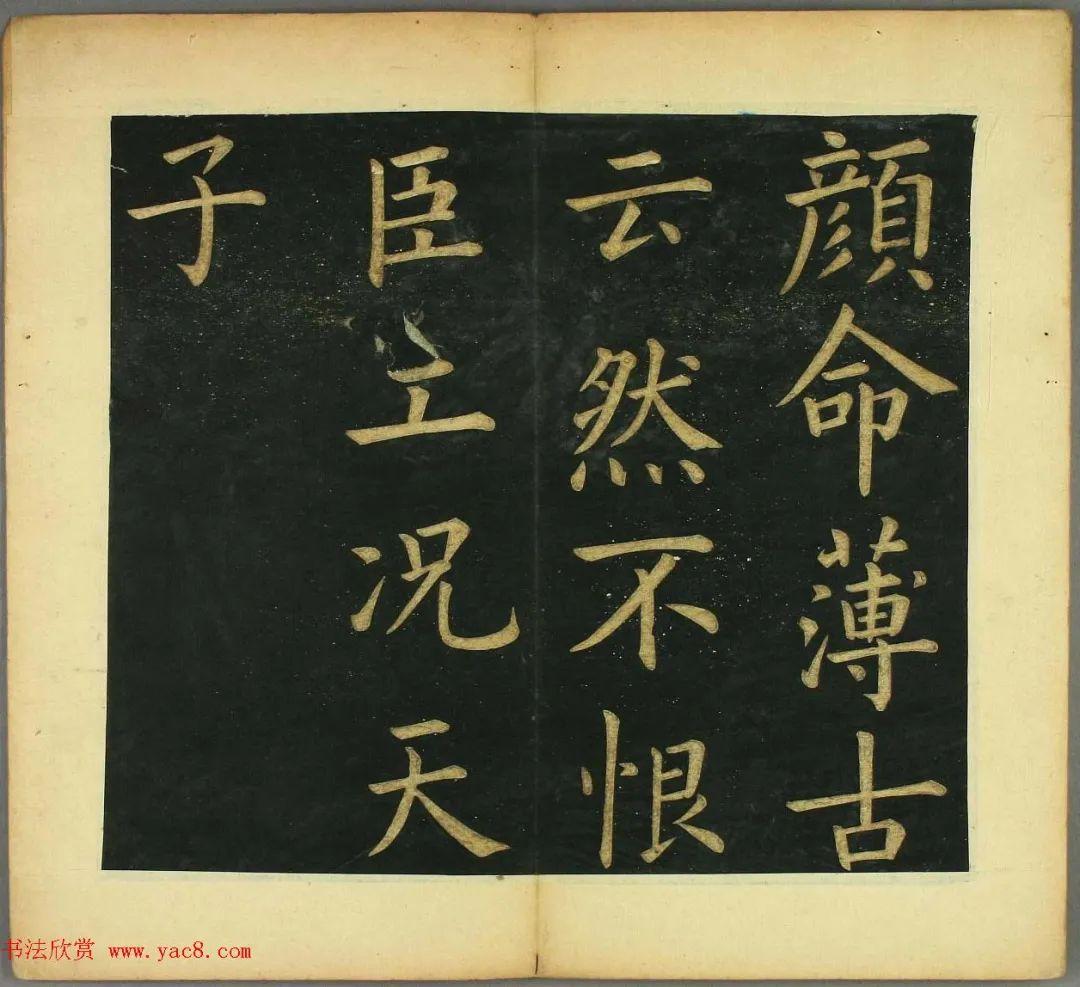 顔命薄古
云然不恨
臣况天
子
书法欣赏 www.yac8.com